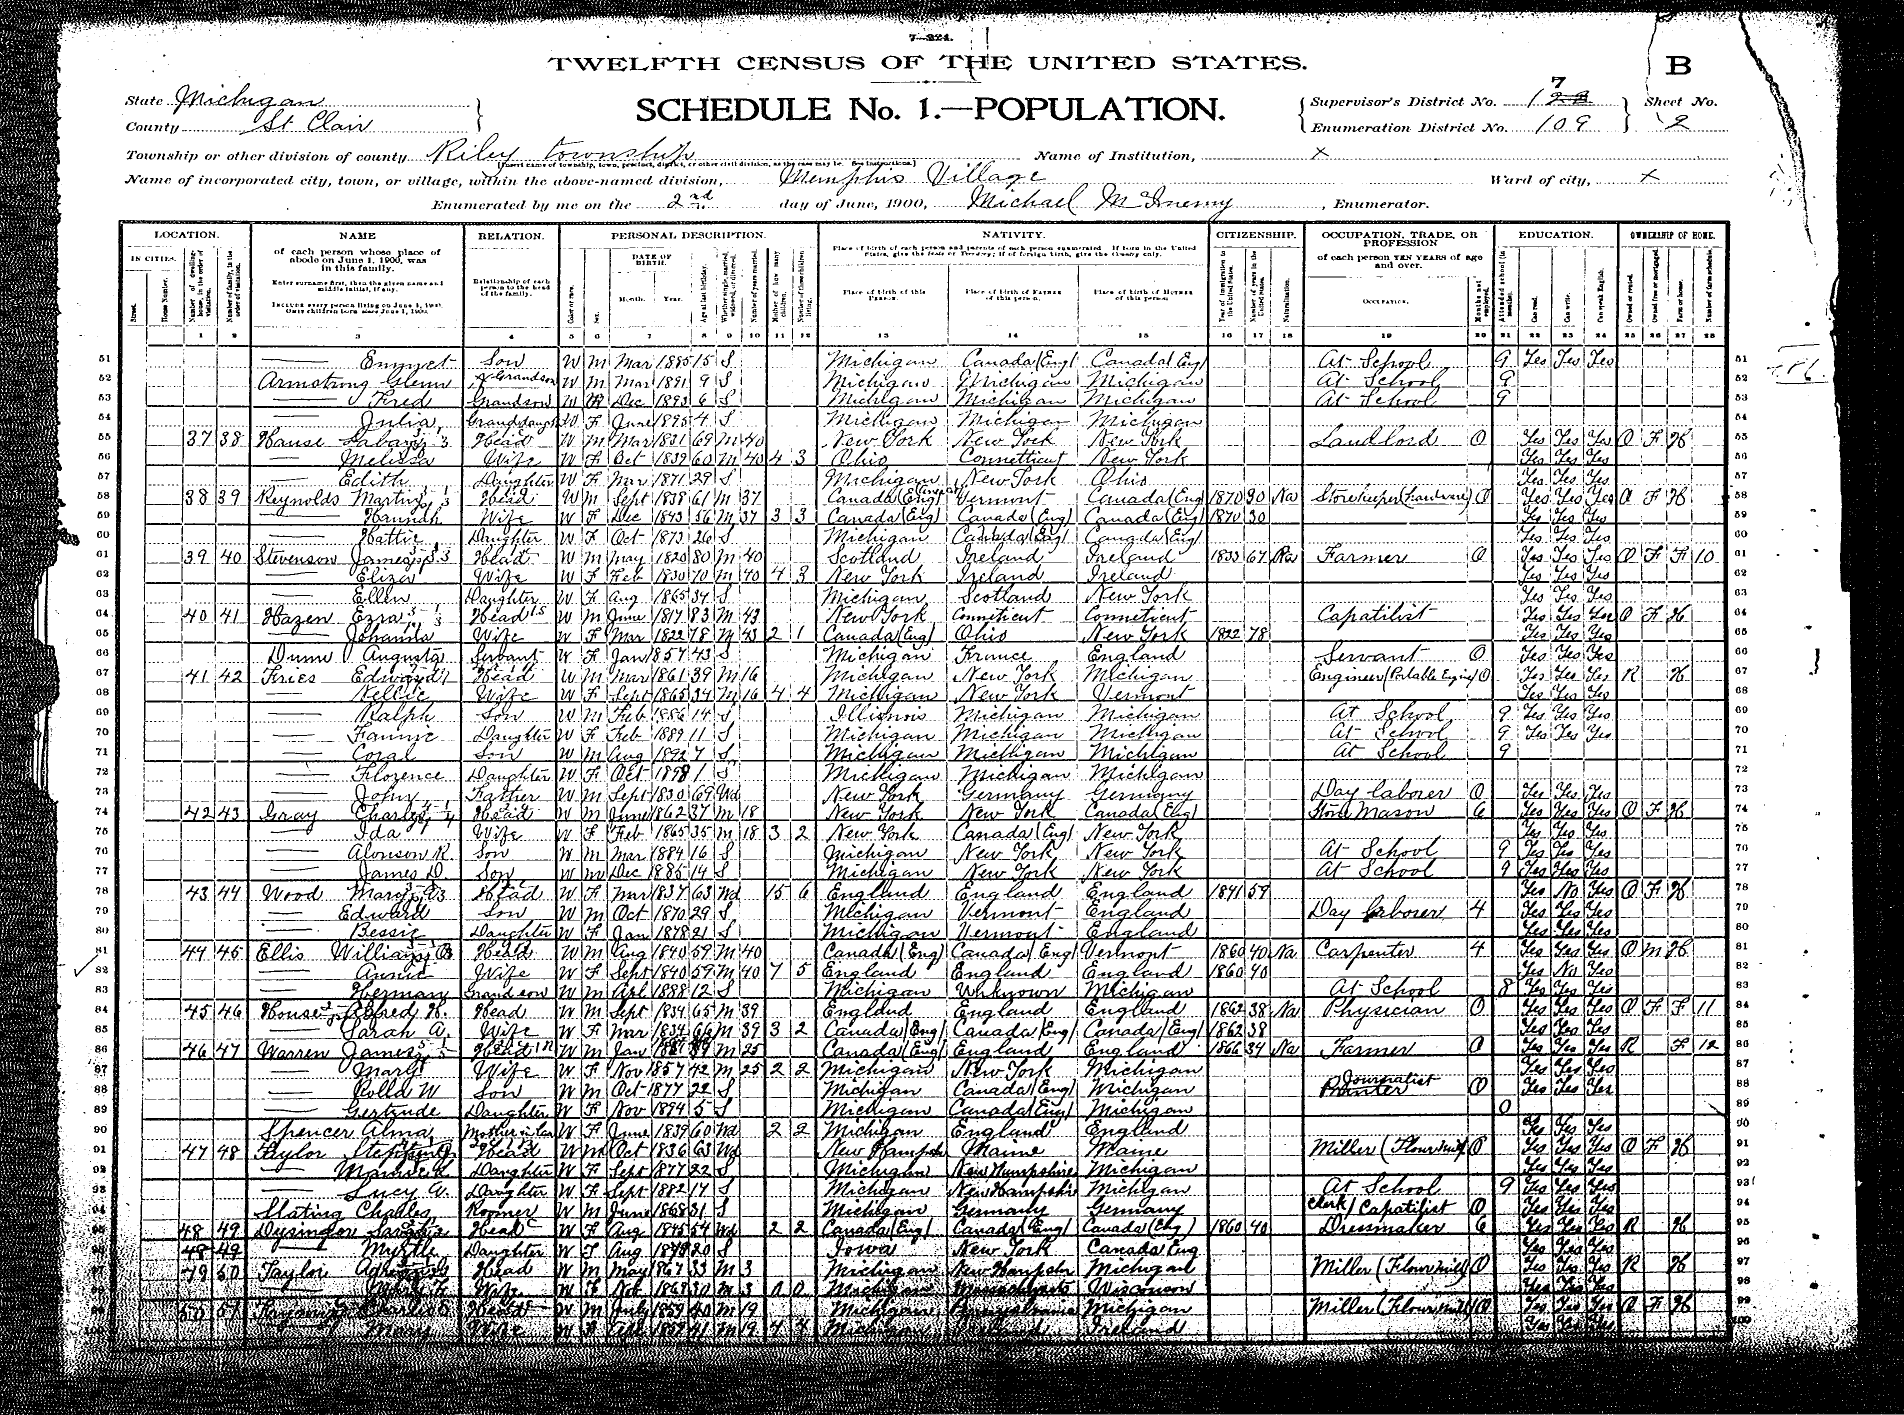 7—224.
TWELFTH CENSUS OF THE UNITED STATES.
B
State Michigan
County St Clair
SCHEDULE No. 1.—POPULATION.
Supervisor's District No. 7
Enumeration District No. 109
Sheet No. 2
Township or other division of county Riley township
Name of Institution, x
Name of incorporated city, town, or village, within the above-named division, Memphis Village
Ward of city, x
Enumerated by me on the 2nd day of June, 1900, Michael McInerny, Enumerator.
LOCATION. NAME RELATION. PERSONAL DESCRIPTION. NATIVITY. CITIZENSHIP. OCCUPATION, TRADE, OR PROFESSION EDUCATION. OWNERSHIP OF HOME.
IN CITIES. of each person whose place of abode on June 1, 1900, was in this family. Relationship of each person to the head of the family. DATE OF BIRTH. of each person TEN YEARS of age and over.
Enter surname first, then the given name and middle initial, if any.
Include every person living on June 1, 1900. Omit children born since June 1, 1900.
Month. Year. Place of birth of this Person. Place of birth of Father of this person. Place of birth of Mother of this person. Occupation.
1 2 3 4 5 6 7 8 9 10 11 12 13 14 15 16 17 18 19 20 21 22 23 24 25 26 27 28
51 — Emmet Son W M Mar 1885 15 S Michigan Canada (Eng) Canada (Eng) At School 9 Yes Yes Yes 51
52 Armstrong Glenn Grandson W M Mar 1891 9 S Michigan Michigan Michigan At School 9
53 — Fred Grandson W M Dec 1893 6 S Michigan Michigan Michigan At School 9 53
54 — Julia W F June 1895 4 S Michigan Michigan Michigan 54
55 37 38 Hause Head W M Mar 1831 69 M 40 New York New York New York Landlord 0 Yes Yes Yes O F H 55
56 — Melissa Wife W F Oct 1839 60 M 40 4 3 Ohio Connetticut New York Yes Yes Yes 56
57 — Edith Daughter W F Mar 1871 29 S Michigan New York Ohio Yes Yes Yes 57
58 38 39 Reynolds Martin Head W M Sept 1838 61 M 37 Canada (Eng) Vermont Canada (Eng) 1870 30 Na Storekeeper (hardware) 0 Yes Yes Yes O F H 58
59 — Hannah Wife W F Dec 1843 56 M 37 3 3 Canada (Eng) Canada (Eng) Canada (Eng) 1870 30 Yes Yes Yes 59
60 — Hattie Daughter W F Oct 1873 26 S Michigan Canada (Eng) Canada (Eng) Yes Yes Yes 60
61 39 40 Stevenson James S Head W M May 1820 80 M 40 Scotland Ireland Ireland 1833 67 Na Farmer 0 Yes Yes Yes O F F 10 61
62 — Eliza Wife W F Feb 1830 70 M 40 4 3 New York Ireland Ireland Yes Yes Yes 62
63 — Ellen Daughter W F Aug 1865 34 S Michigan Scotland New York Yes Yes Yes 63
64 40 41 Hazen Ezra Head W M June 1817 83 M 43 New York Conneticut Conneticut Capatilist Yes Yes Yes O F H 64
65 — Johanna Wife W F Mar 1822 78 M 43 2 1 Canada (Eng) Ohio New York 1822 78 Yes Yes Yes 65
66 Dunn Augusta Servant W F Jan 1857 43 S Michigan France England Servant 0 Yes Yes Yes 66
67 41 42 Fries Edward Head W M Mar 1861 39 M 16 Michigan New York Michigan Engineer (Portable Engine) 0 Yes Yes Yes R H 67
68 — Nellie Wife W F Sept 1865 34 M 16 4 4 Michigan New York Vermont Yes Yes Yes 68
69 — Ralph Son W M Feb 1886 14 S Illinois Michigan Michigan At School 9 Yes Yes Yes 69
70 — Fannie Daughter W F Feb 1889 11 S Michigan Michigan Michigan At School 9 Yes Yes Yes 70
71 — Coral Son W M Aug 1892 7 S Michigan Michigan Michigan At School 9 71
72 — Florence Daughter W F Oct 1898 1 S Michigan Michigan Michigan 72
73 — John Father W M Sept 1830 69 Wd New York Germany Germany Day laborer 0 Yes Yes Yes 73
74 42 43 Gray Charles Head W M June 1862 37 M 18 New York New York Canada (Eng) Stone Mason 6 Yes Yes Yes O F H 74
75 — Ida Wife W F Feb 1865 35 M 18 3 2 New York Canada (Eng) New York Yes Yes Yes 75
76 — Alonson R. Son W M Mar 1884 16 S Michigan New York New York At School 9 Yes Yes Yes 76
77 — James D. Son W M Dec 1885 14 S Michigan New York New York At School 9 Yes Yes Yes 77
78 43 44 Wood Mary Head W F Mar 1837 63 Wd 15 6 England England England 1841 59 Yes No Yes O F H 78
79 — Edward Son W M Oct 1870 29 S Michigan Vermont England Day laborer 4 Yes Yes Yes 79
80 — Bessie Daughter W F Jan 1878 21 S Michigan Vermont England Yes Yes Yes 80
81 44 45 Ellis William Head W M Aug 1840 59 M 40 Canada (Eng) Canada (Eng) Vermont 1860 40 Na Carpenter 4 Yes Yes Yes O M H 81
82 — Annie Wife W F Sept 1840 59 M 40 7 5 England England England 1860 40 Yes No Yes 82
83 — Herman Grandson W M Apl 1888 12 S Michigan Unknown Michigan At School 8 Yes Yes Yes 83
84 45 46 House Alfred H. Head W M Sept 1834 65 M 39 England England England 1862 38 Na Physician 0 Yes Yes Yes O F F 11 84
85 — Sarah A. Wife W F Mar 1834 66 M 39 3 2 Canada (Eng) Canada (Eng) Canada (Eng) 1862 38 Yes Yes Yes 85
86 46 47 Warren James Head W M Jan M 25 Canada (Eng) England England 1866 34 Na Farmer 0 Yes Yes Yes R F 12 86
87 — Mary Wife W F Nov 1857 42 M 25 2 2 Michigan New York Michigan Yes Yes Yes 87
88 — Rolla W Son W M Oct 1877 22 S Michigan Canada (Eng) Michigan Journalist 0 Yes Yes Yes 88
89 — Gertrude Daughter W F Nov 1894 5 S Michigan Canada (Eng) Michigan 0 89
90 Spencer Alma Mother in law W F June 1839 60 Wd 2 2 Michigan England England Yes Yes Yes 90
91 47 48 Taylor Head W M Oct 1836 63 Wd New Hampsh Maine Maine Miller (Flour mill) 0 Yes Yes Yes O F H 91
92 — Daughter W F Sept 1877 22 S Michigan New Hampshire Michigan Yes Yes Yes 92
93 — Lucy A. Daughter W F Sept 1882 17 S Michigan New Hampshire Michigan At School 9 Yes Yes Yes 93
94 Slating Charles Roomer W M June 1868 31 S Michigan Germany Germany Clerk / Capatilist 0 Yes Yes Yes 94
95 48 49 Dysinger Head W F Aug 1845 54 Wd 2 2 Canada (Eng) Canada (Eng) Canada (Eng) 1860 40 Dressmaker 6 Yes Yes Yes R H 95
96 48 49 — Myrtle Daughter W F Aug 20 S Iowa New York Canada Eng Yes Yes Yes 96
97 50 Taylor Head W M May 1867 33 M 3 Michigan New Hampshr Michigan Miller (Flour mill) 0 Yes Yes Yes R H 97
98 — Wife W F 30 M 3 0 0 Michigan Massachusetts Wisconsin Yes Yes Yes 98
99 50 51 Charles Head W M July 1859 40 M 19 Michigan Pennsylvania Michigan Miller (Flour mill) 0 Yes Yes Yes O F H 99
100 — Mary Wife W F Apl 1859 41 M 19 4 4 Michigan Ireland Ireland Yes Yes Yes 100